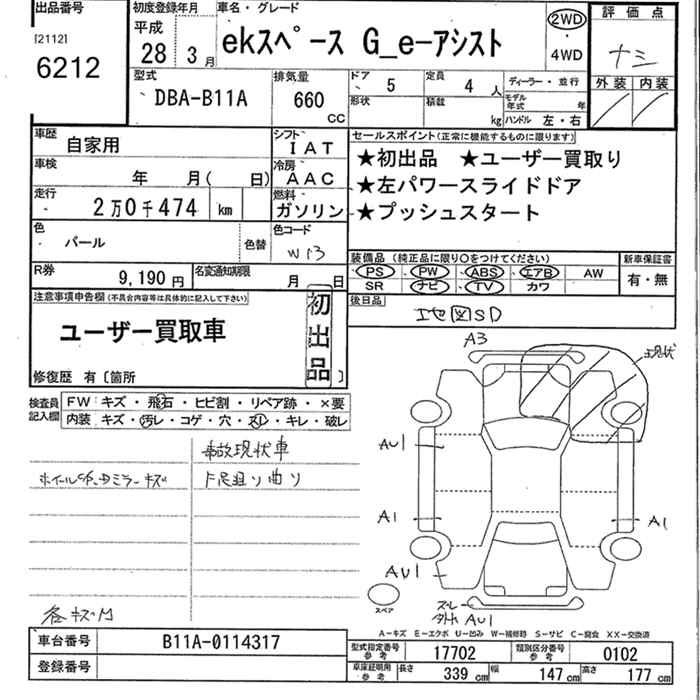 出品番号
[2112]
6212
初度登録年月
平成
28年 3月
車名・グレード
ekスペース G_e-アシスト
2WD
・
4WD
評価点
ナシ
外装 内装
型式
DBA-B11A
排気量
660
CC
ドア 5
形状
定員 4 人
積載 kg
ディーラー・並行
モデル年式 年
ハンドル 左・右
車歴 自家用
車検 年 月( 日)
走行 2万0千474 km
色 パール
色替
シフト IAT
冷房 AAC
燃料 ガソリン
色コード
W13
R券 9,190円
名変通知期限 月 日
セールスポイント(正常に機能するものに限ります)
★初出品 ★ユーザー買取り
★左パワースライドドア
★プッシュスタート
装備品(純正品に限り○をつけてください)
PS PW ABS エアB AW
SR ナビ TV カワ
新車保証書
有・無
後日品
地図SD
注意事項申告欄(不具合内容等は具体的に記入して下さい)
ユーザー買取車
初出品
修復歴 有〔箇所 〕
検査員記入欄
FW:キズ・飛石・ヒビ割・リペア跡・×要
内装:キズ・汚レ・コゲ・穴・スレ・キレ・破レ
事故現状車
下足廻り曲り
A3
現状
AU1
A1
A1
AU1
スペア
スレ
AU1
各キズ凹
A-キズ E-エクボ U-凹み W-補修跡 S-サビ C-腐食 XX-交換済
車台番号 B11A-0114317
登録番号
型式指定番号 参考 17702
類別区分番号 参考 0102
車庫証明用 参考 長さ 339cm 幅 147cm 高さ 177cm